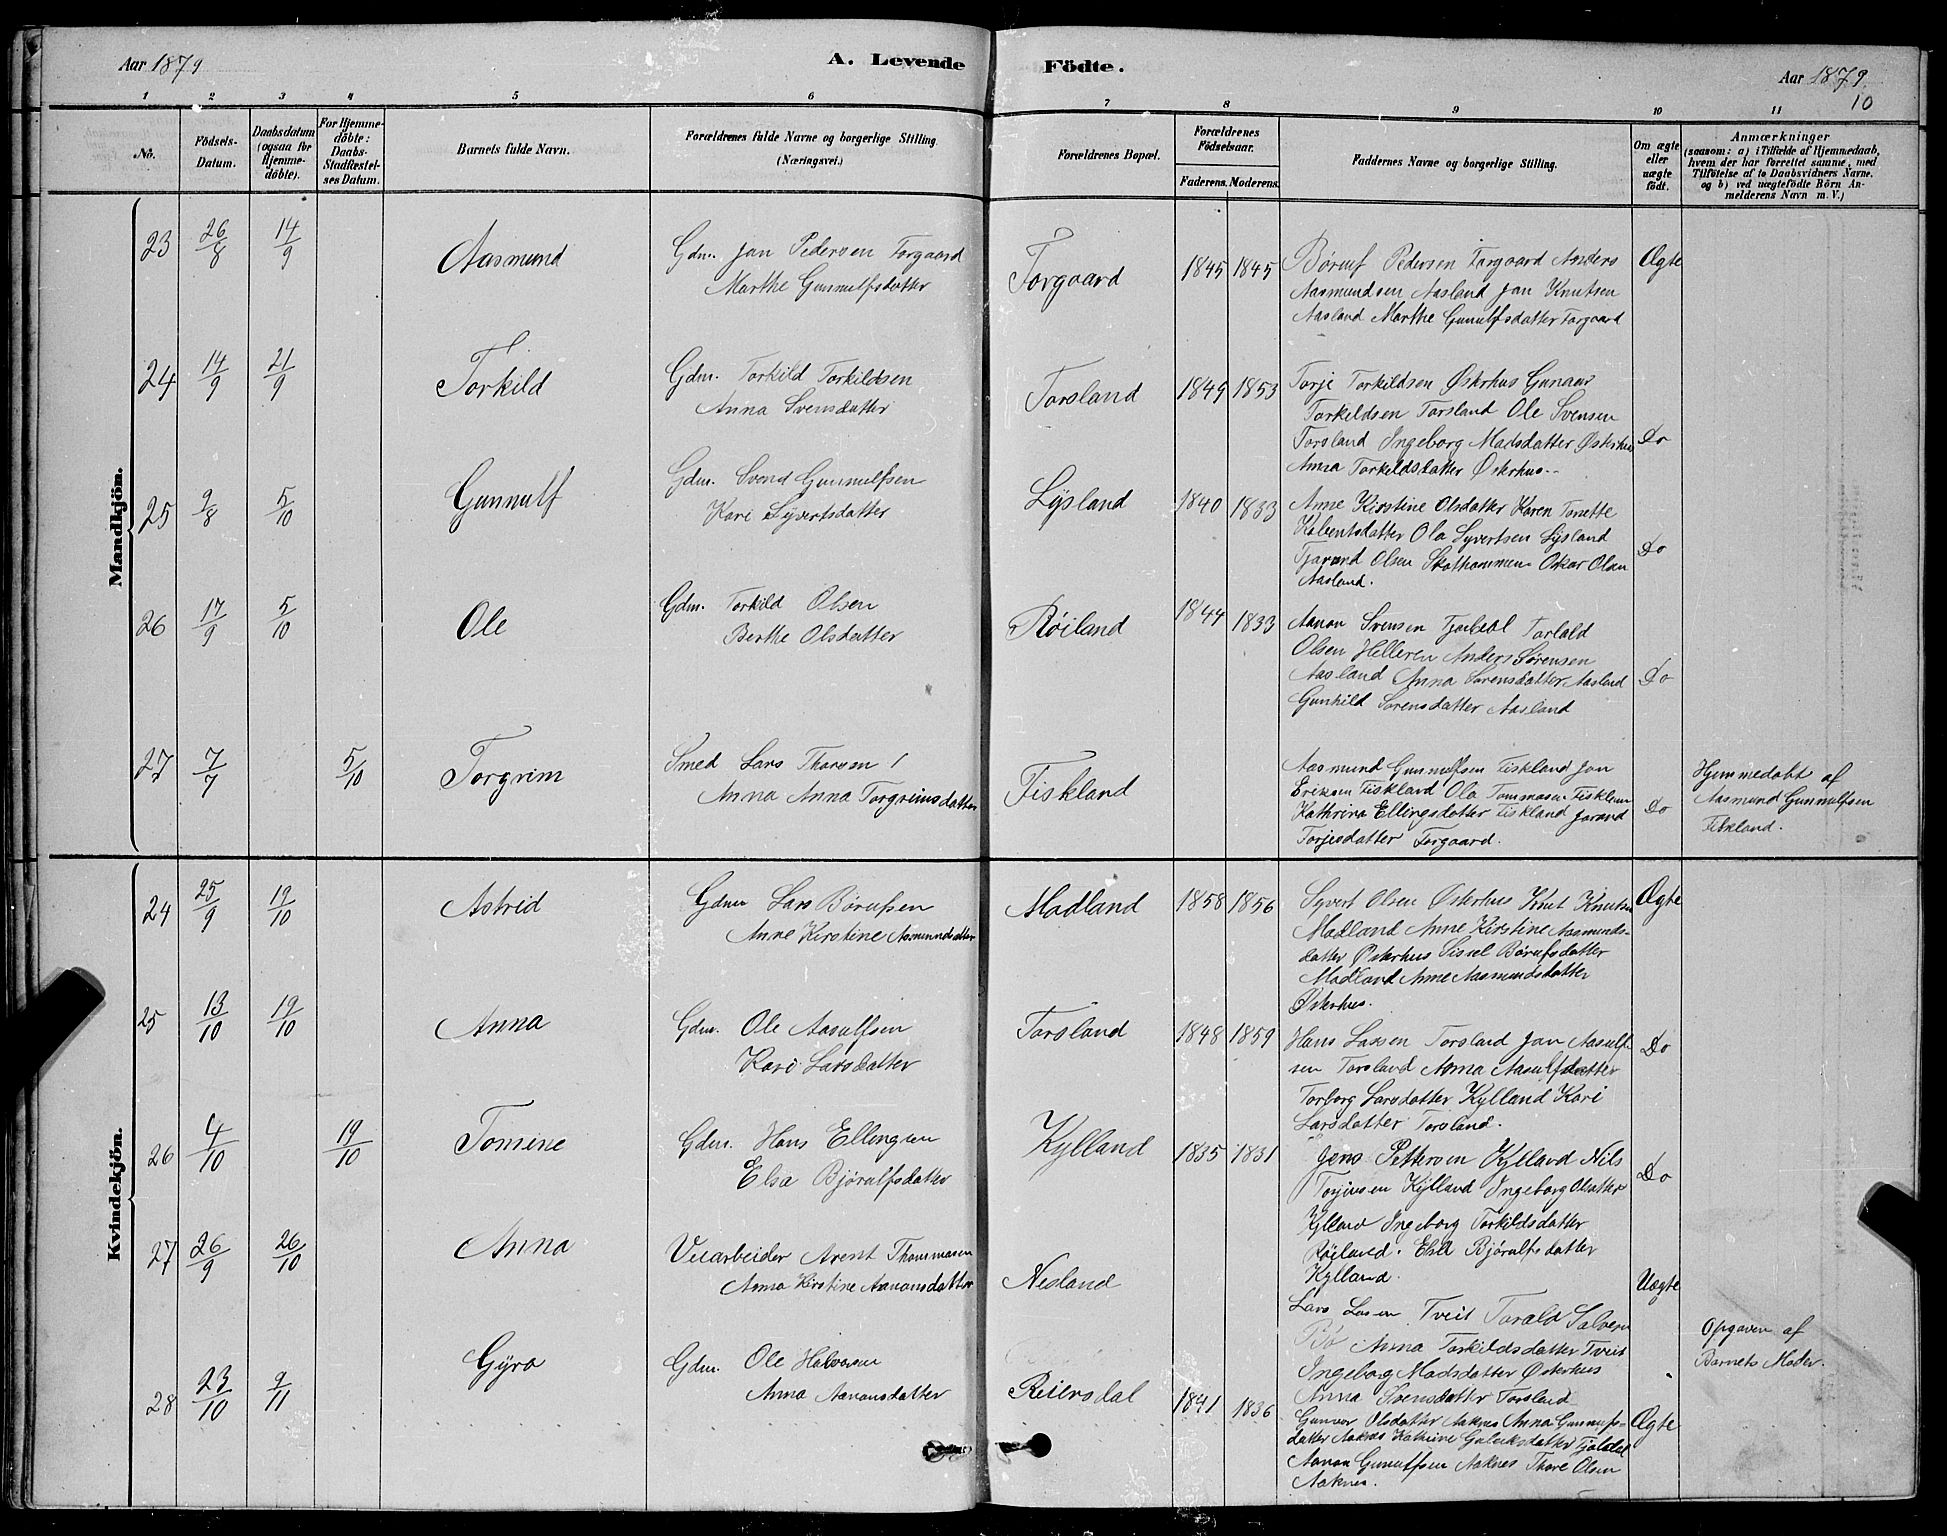 Aar 1879
A. Levende Födte.
Aar 1879.
10
1 2 3 4 5 6 7 8 9 10 11
No.
Födsels-Datum.
Daabsdatum (ogsaa for Hjemme-döbte).
For Hjemme-döbte: Daabs-Stadfæstel-ses Datum.
Barnets fulde Navn.
Forældrenes fulde Navne og borgerlige Stilling (Næringsvei.)
Forældrenes Bopæl.
Forældrenes Födselsaar.
Faderens. Moderens.
Faddernes Navne og borgerlige Stilling.
Om ægte eller uægte födt.
Anmærkninger
(saasom: a) i Tilfælde af Hjemmedaab,
hvem der har forrettet samme, med
Tilföielse af to Daabsvidners Navne.
og b) ved uægtefödte Börn An-
melderens Navn m. V.)
Mandkjön.
23 26/8 14/9 Aasmund Gdm. Jan Pedersen Torgaard
Marthe Gunnulfsdatter
Torgaard 1845 1845
Børuf Pedersen Torgaard Anders
Aasmundsen Aasland Jan Knutsen
Aasland Marthe Gunulfsdatter Torgaard
Ægte
24 14/9 21/9 Torkild Gdm. Torkild Torkildsen
Anna Svensdatter
Torsland 1849 1853
Torje Torkildsen Østrhus Gunaar
Torkildsen Torsland Ole Svensen
Torsland Ingeborg Madsdatter Østrhus
Anna Torkildsdatter Østrhus
Do
25 9/8 5/10 Gunnulf Gdm. Svend Gunnulfsen
Kari Syvertsdatter
Lysland 1840 1833
Anne Kirstine Olsdatter Karen Tonette
Ola Syvertsen Lysland
Olsen Oskar Olsen
Aasland.
Do
26 17/9 5/10 Ole Gdm. Torkild Olsen
Berthe Olsdatter
Røiland 1844 1833
Aanon Svensen Torlald
Olsen Helleren Anders Sørensen
Aasland Anna Sorensdatter Aasland
Gunhild Sorensdatter Aasland
Do
27 7/7 5/10 Torgrim Smed Lars Thorsen
Anna Anna Torgrimsdatter
Fiskland
Aasmund Gunnulfsen Fiskland Jan
Eriksen Fiskland Ola Tommasen
Kathrina Ellingsdatter Fiskland Jorand
Torjusdatter Torgaard.
Do
Hjemmedøbt af
Aasmund Gunnulfsen
Fiskland.
Kvindekjön.
24 25/9 19/10 Astrid Gdm Lars Børufsen
Anne Kirstine Aasmundsdatter
Madland 1858 1856
Syvert Olsen Østrhus Knut Knutsen
Madland Anne Kirstine Aasmunds-
datter Østrhus Sissel Børufsdatter
Madland Anne Aasmundsdatter
Østrhus.
Ægte
25 13/10 19/10 Anna Gdm. Ole Aasulfsen
Kari Larsdatter
Torsland 1848 1859
Hans Lassen Torsland Jan Aasulf-
sen Torsland Anna Aasulfsdatter
Torborg Larsdatter Kylland Kari
Larsdatter Torsland.
Do
26 4/10 19/10 Tomine Gdm. Hans Ellingsen
Elsa Bjørulfsdatter
Kylland 1835 1831
Jens Pettersen Kylland Nils
Torjussen Kylland Ingeborg Olsdatter
Kylland Ingeborg Torkildsdatter
Røiland. Elsa Bjørulfsdatter
Kylland.
Do
27 26/9 26/10 Anna Veiarbeider Arent Thommasen
Anna Kirstine Aanonsdatter
Nesland
Lars Tveit Torald Salvesen
Bø Anna Torkildsdatter Tveit
Ingeborg Madsdatter Østerhus
Anna Svensdatter Torsland
Uægte
Opgaven af
Barnets Moder.
28 23/10 9/11 Gyro Gdm. Ole Halvorsen
Anna Aanonsdatter
Reiersdal 1841 1836
Gunvor Olsdatter Aaknes Anna Gunnufs-
datter Aaknes Kathrine
Aanon Gunulfsen Aaknes Thore Olsen
Aaknes.
Ægte